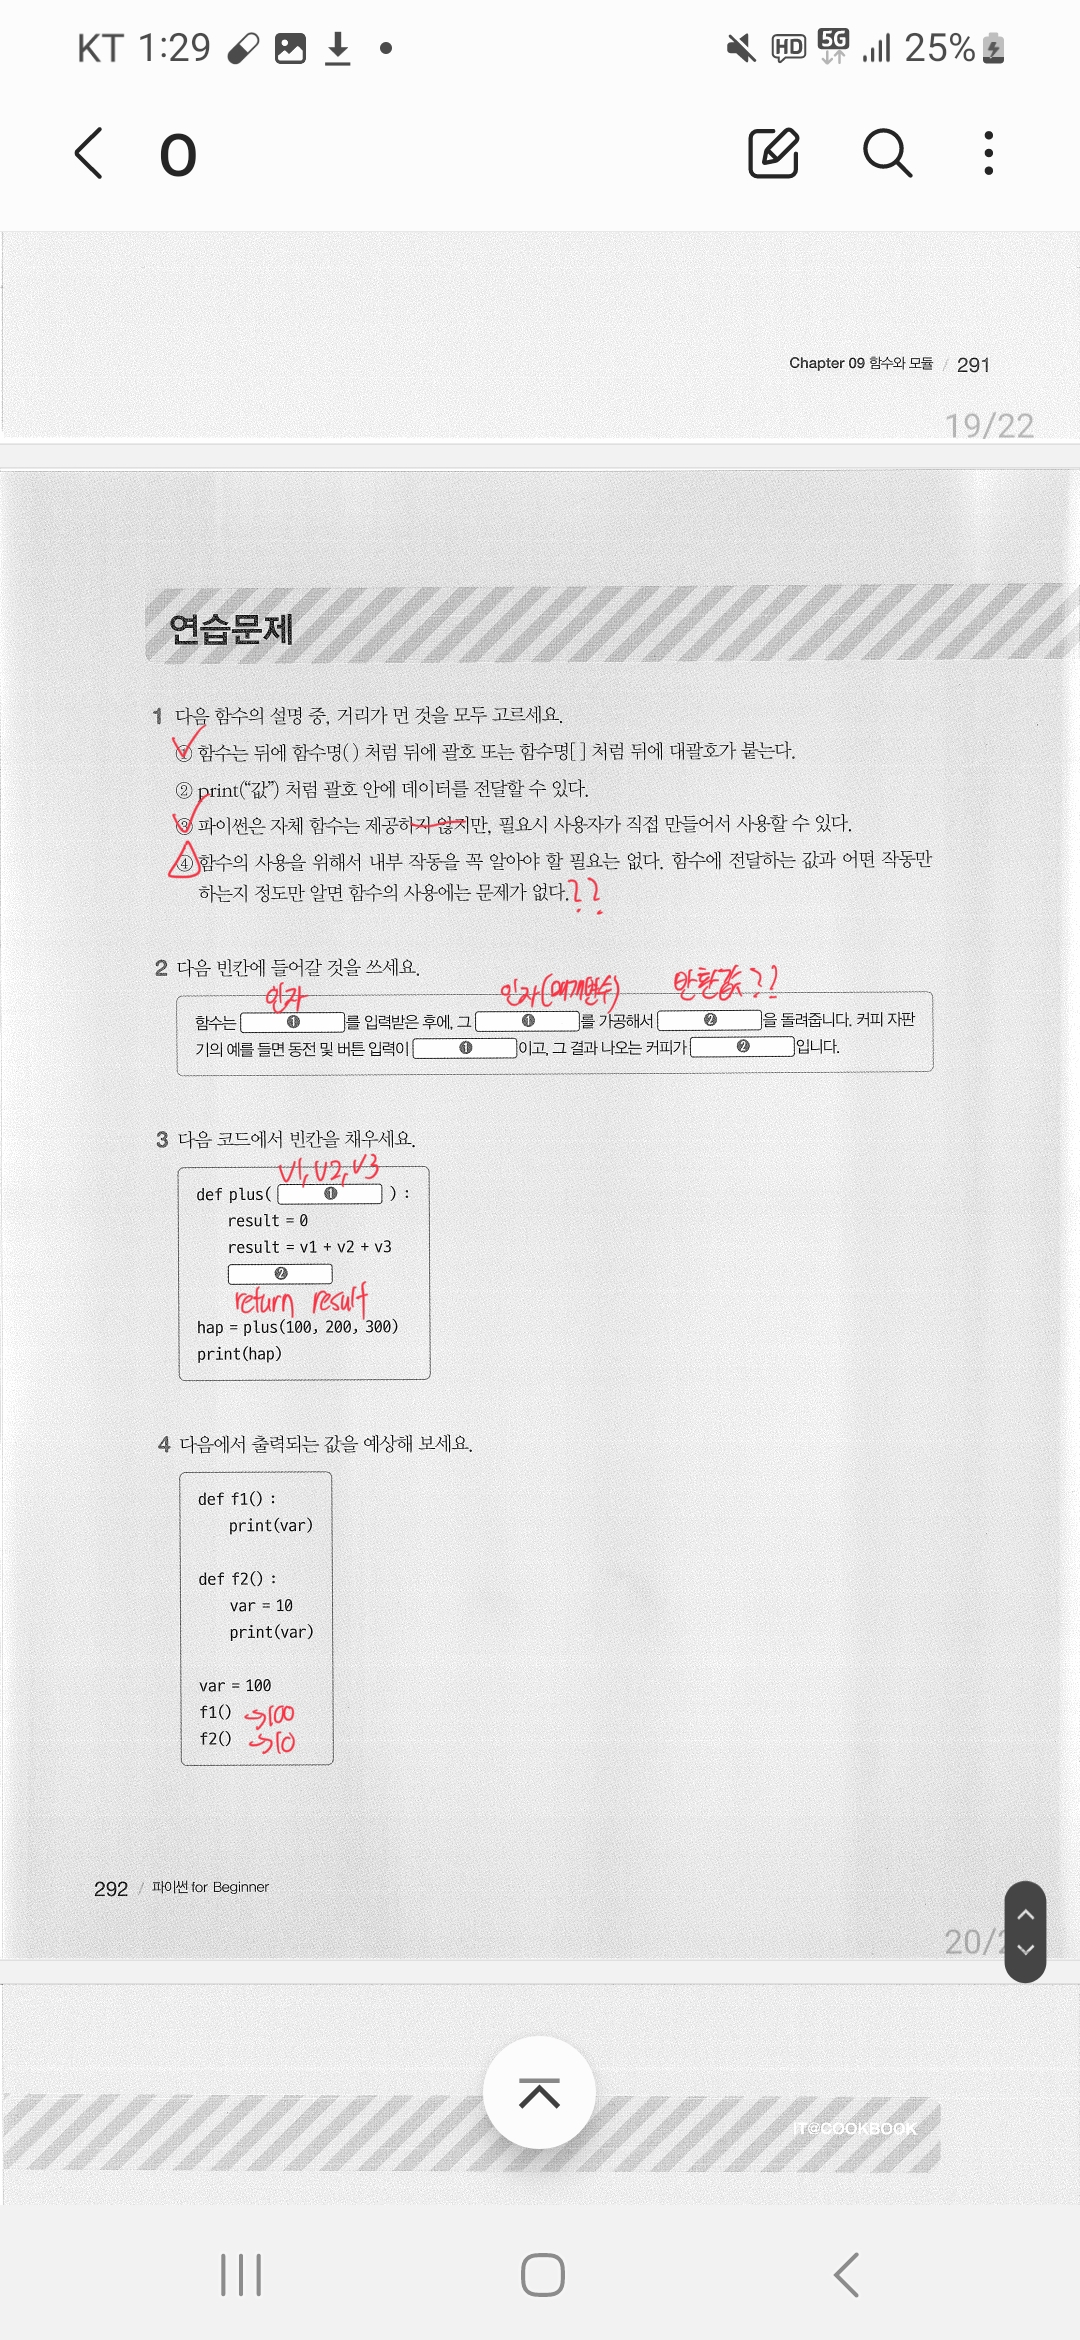 KT 1:29
HD 5G 25%
O
Chapter 09 함수와 모듈 / 291
19/22
연습문제
1 다음 함수의 설명 중, 거리가 먼 것을 모두 고르세요.
① 함수는 뒤에 함수명( ) 처럼 뒤에 괄호 또는 함수명[ ] 처럼 뒤에 대괄호가 붙는다.
② print(“값”) 처럼 괄호 안에 데이터를 전달할 수 있다.
③ 파이썬은 자체 함수는 제공하지 않지만, 필요시 사용자가 직접 만들어서 사용할 수 있다.
④ 함수의 사용을 위해서 내부 작동을 꼭 알아야 할 필요는 없다. 함수에 전달하는 값과 어떤 작동만
하는지 정도만 알면 함수의 사용에는 문제가 없다. ??
2 다음 빈칸에 들어갈 것을 쓰세요.
인자 인자(매개변수) 반환값??
함수는 ❶ 를 입력받은 후에, 그 ❶ 를 가공해서 ❷ 을 돌려줍니다. 커피 자판
기의 예를 들면 동전 및 버튼 입력이 ❶ 이고, 그 결과 나오는 커피가 ❷ 입니다.
3 다음 코드에서 빈칸을 채우세요.
v1, v2, v3
def plus( ❶ ) :
result = 0
result = v1 + v2 + v3
❷
return result
hap = plus(100, 200, 300)
print(hap)
4 다음에서 출력되는 값을 예상해 보세요.
def f1() :
print(var)
def f2() :
var = 10
print(var)
var = 100
f1() →100
f2() →10
292 / 파이썬 for Beginner
20/2
IT@COOKBOOK